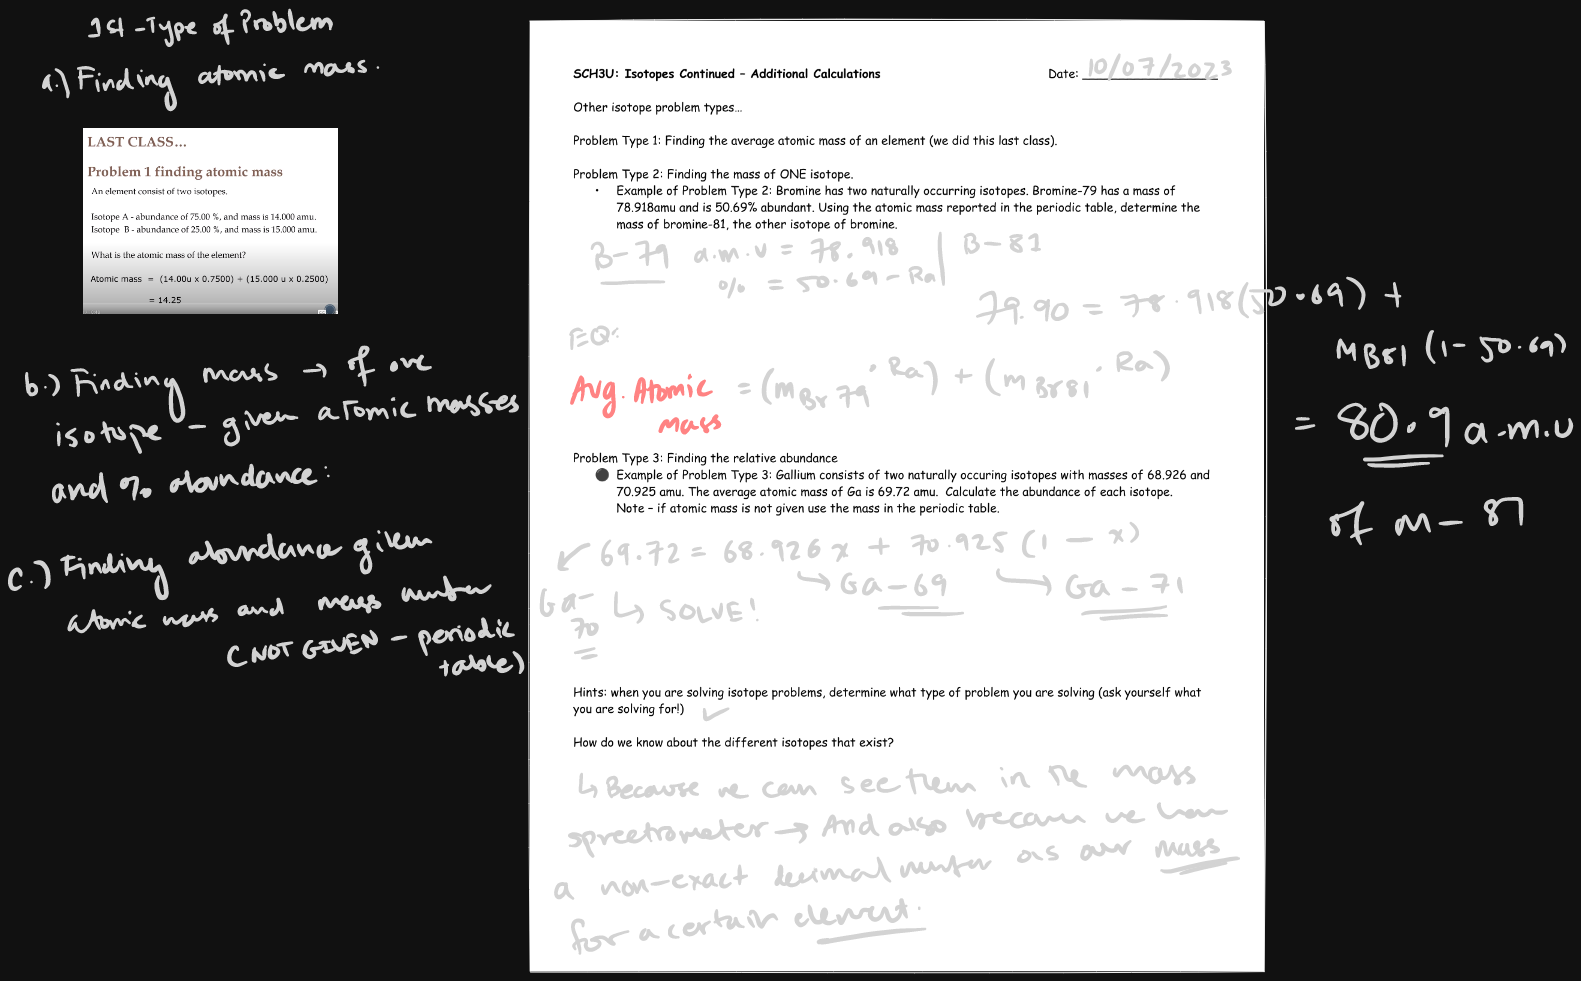 1st - Type of Problem
a.) Finding atomic mass.
LAST CLASS...
Problem 1 finding atomic mass
An element consist of two isotopes.
Isotope A - abundance of 75.00 %, and mass is 14.000 amu.
Isotope B - abundance of 25.00 %, and mass is 15.000 amu.
What is the atomic mass of the element?
Atomic mass = (14.00u x 0.7500) + (15.000 u x 0.2500)
= 14.25
b.) Finding mass → of one
isotope - given atomic masses
and % abundance:
c.) Finding abundance given
atomic mass and mass number
(NOT GIVEN - periodic
table)
SCH3U: Isotopes Continued – Additional Calculations
Date: 10/07/2023
Other isotope problem types...
Problem Type 1: Finding the average atomic mass of an element (we did this last class).
Problem Type 2: Finding the mass of ONE isotope.
• Example of Problem Type 2: Bromine has two naturally occurring isotopes. Bromine-79 has a mass of
78.918amu and is 50.69% abundant. Using the atomic mass reported in the periodic table, determine the
mass of bromine-81, the other isotope of bromine.
B-79 a.m.u = 78.918 | B-81
% = 50.69 - Ra
79.90 = 78.918(50.69) +
MB81 (1- 50.69)
= 80.9 a.m.u
of m- 81
EQ:
Avg. Atomic mass = (mBr79 · Ra) + (mBr81 · Ra)
Problem Type 3: Finding the relative abundance
Example of Problem Type 3: Gallium consists of two naturally occuring isotopes with masses of 68.926 and
70.925 amu. The average atomic mass of Ga is 69.72 amu. Calculate the abundance of each isotope.
Note – if atomic mass is not given use the mass in the periodic table.
69.72 = 68.926x + 70.925 (1 - x)
↳ Ga-69 ↳ Ga-71
Ga-70
↳ SOLVE!
Hints: when you are solving isotope problems, determine what type of problem you are solving (ask yourself what
you are solving for!)
How do we know about the different isotopes that exist?
↳ Because we can see them in the mass
spreetrometer → And also because we have
a non-exact decimal number as our mass
for a certain element.